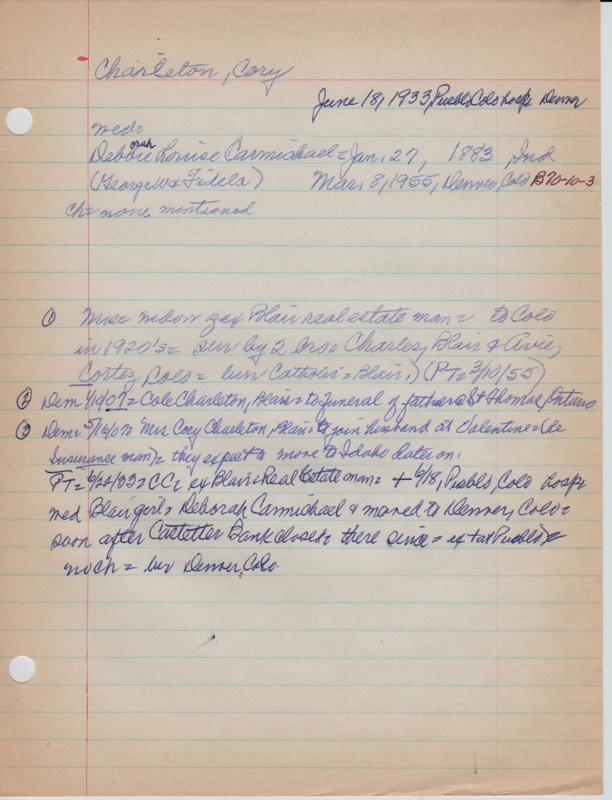 Charleton, Cory
June 18, 1933, Pueblo Colo hosp= Denver
wed=
Deborah Louise Carmichael = Jan, 27, 1883, Ind
(George W & Fidela) Mar, 8, 1955, Denver, Colo B70-10-3
Ch= none mentioned
① Mrs= widow of ex Blair real estate man= to Colo
in 1920's= sur by 2 bro= Charles, Blair & Avie,
Cortez, Colo= bur Catholic= Blair.) (PT= 3/10/55)
② Dem 4/1907= Cole Charleton, Blair= to funeral of father @ St Thomas, Ontario
③ Dem= 5/ Mrs Cory Charleton, Blair= to join husband at Valentine= (he
Insurance man)= they expect to move to Idaho later on.
PT= 6/22/33= CC, ex Blair= Real Estate man= + 6/18, Pueblo, Colo hosp=
wed Blair girl= Deborah Carmichael & moved to Denver, Colo=
soon after Castetter Bank closed= there since=
no ch= bur Denver, Colo.